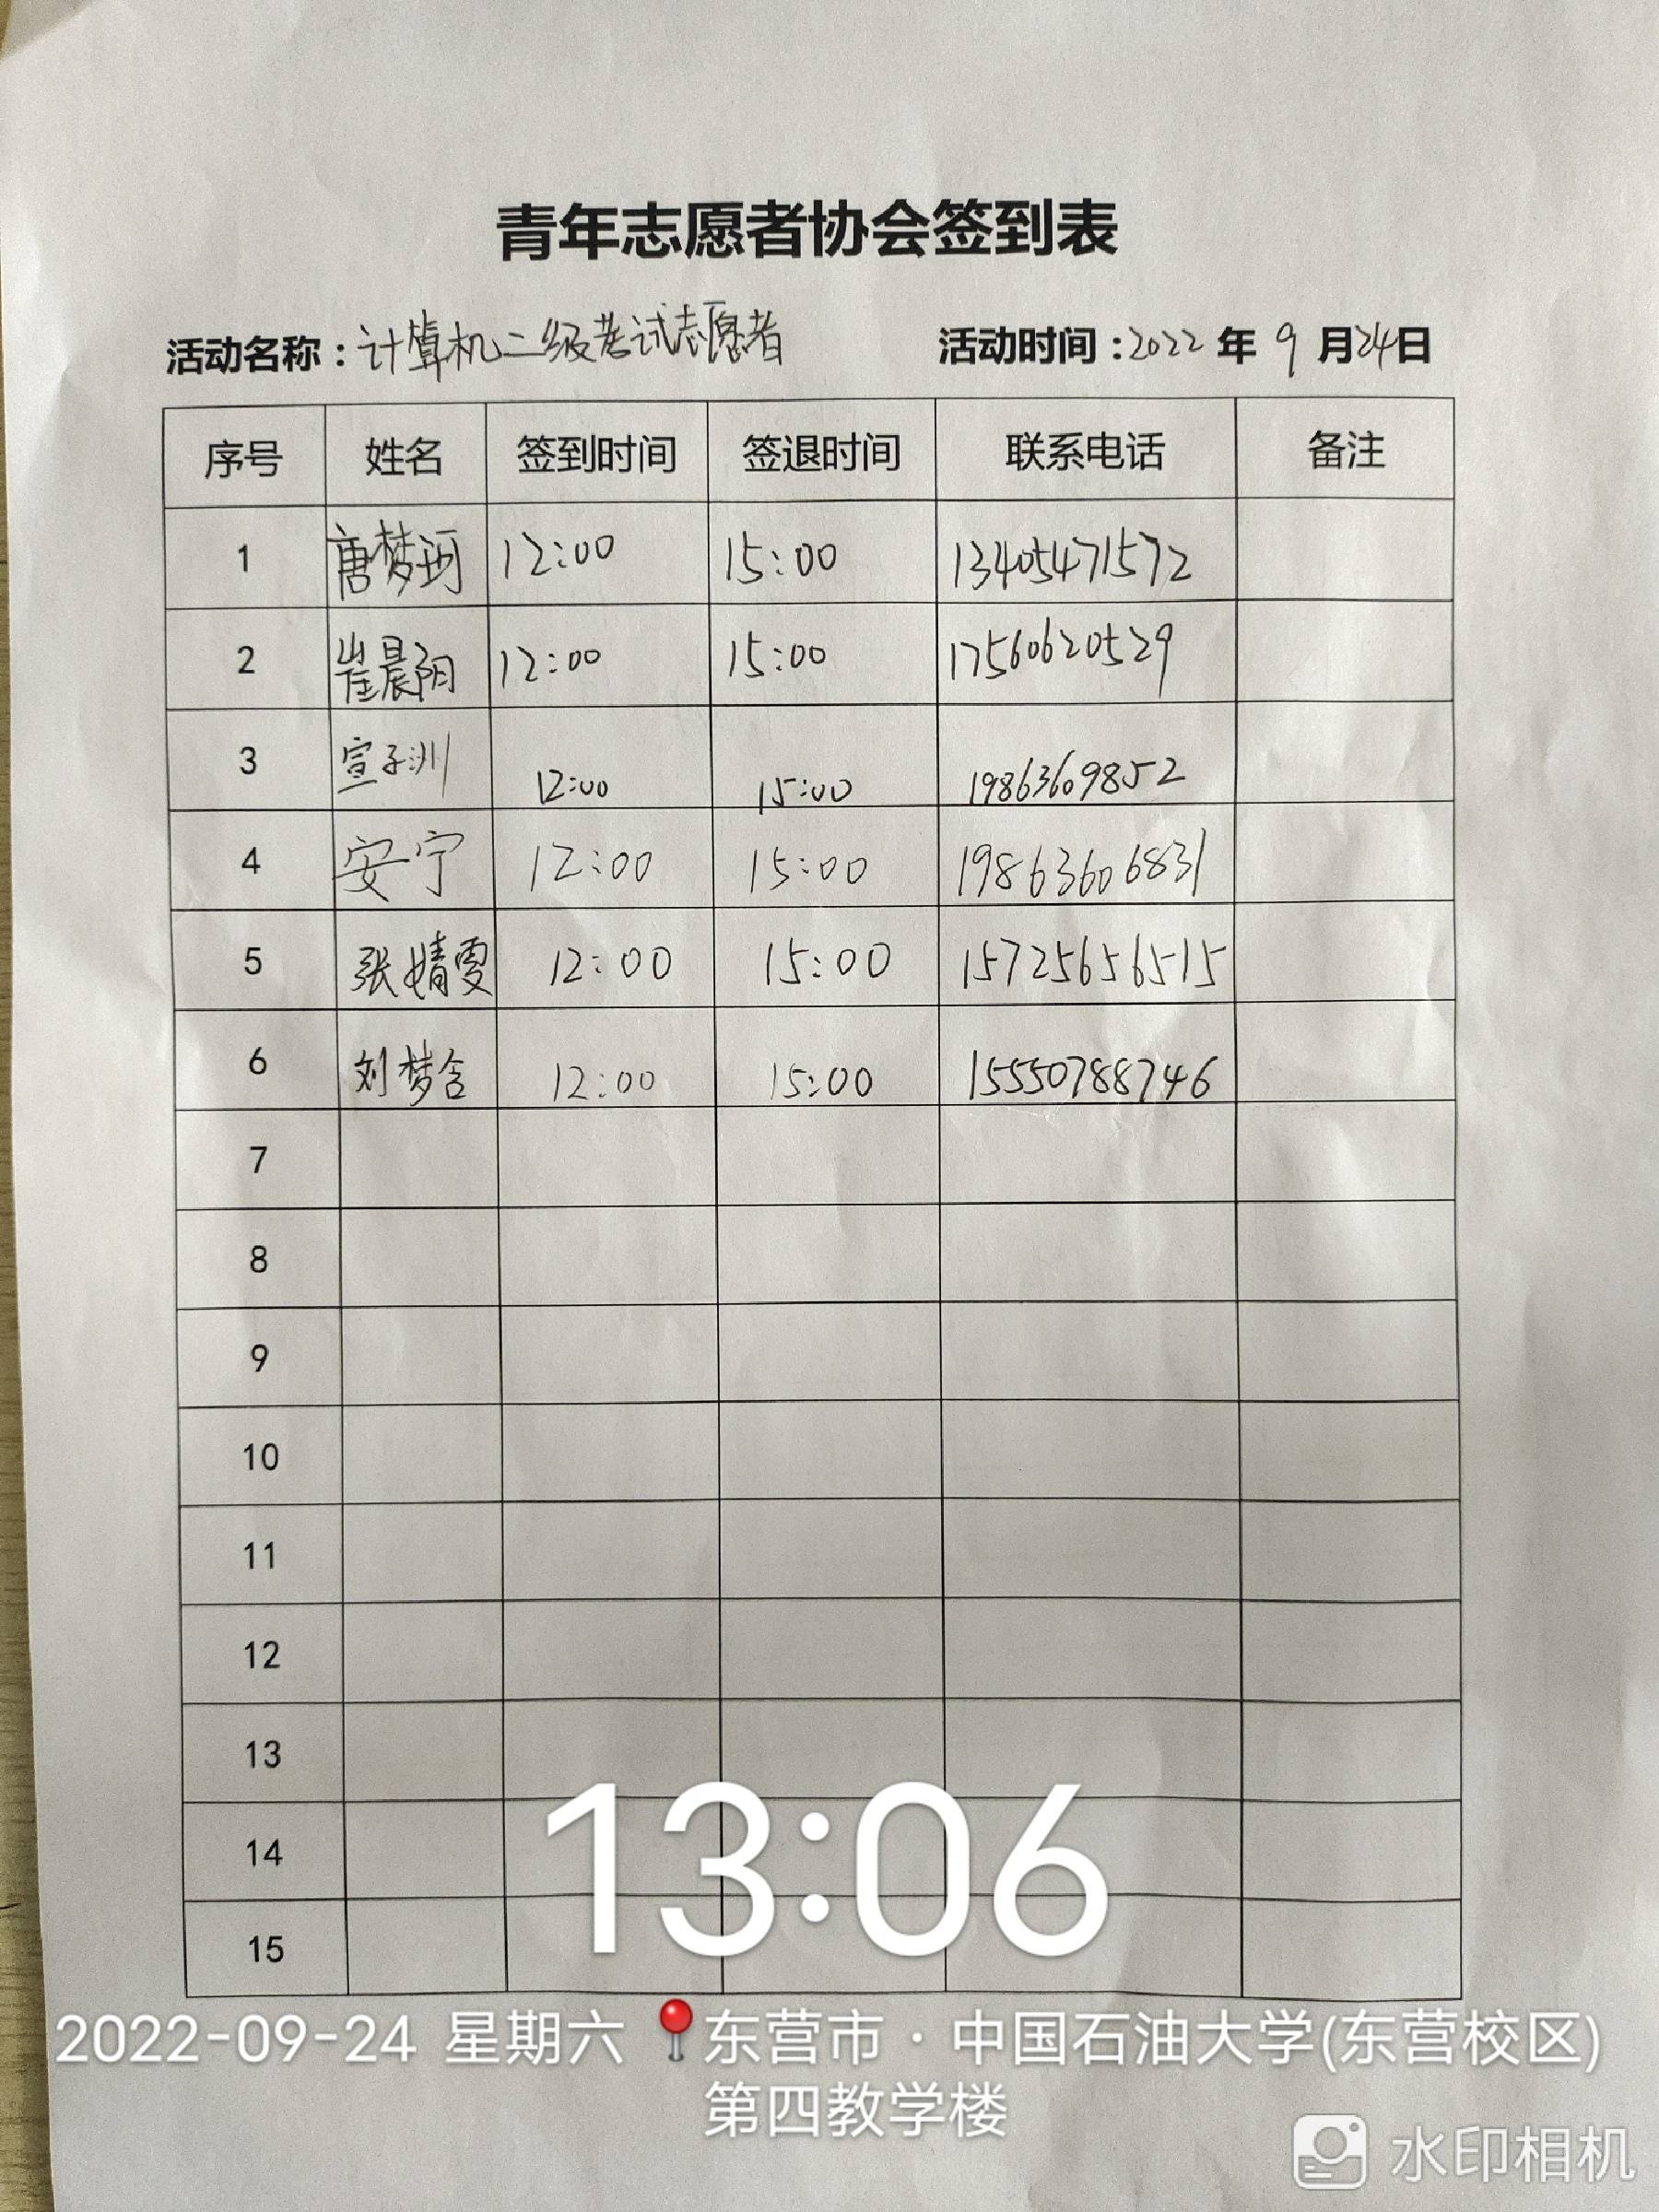 青年志愿者协会签到表
活动名称：计算机二级考试志愿者 活动时间：2022年9月24日
序号 姓名 签到时间 签退时间 联系电话 备注
1 唐梦珂 12:00 15:00 13405471572
2 崔晨阳 12:00 15:00 17560620529
3 宣子洲 12:00 15:00 19863609852
4 安宁 12:00 15:00 19863606831
5 张婧雯 12:00 15:00 15725656515
6 刘梦含 12:00 15:00 15550788746
7
8
9
10
11
12
13
14
15
13:06
2022-09-24 星期六 东营市·中国石油大学(东营校区)
第四教学楼
水印相机